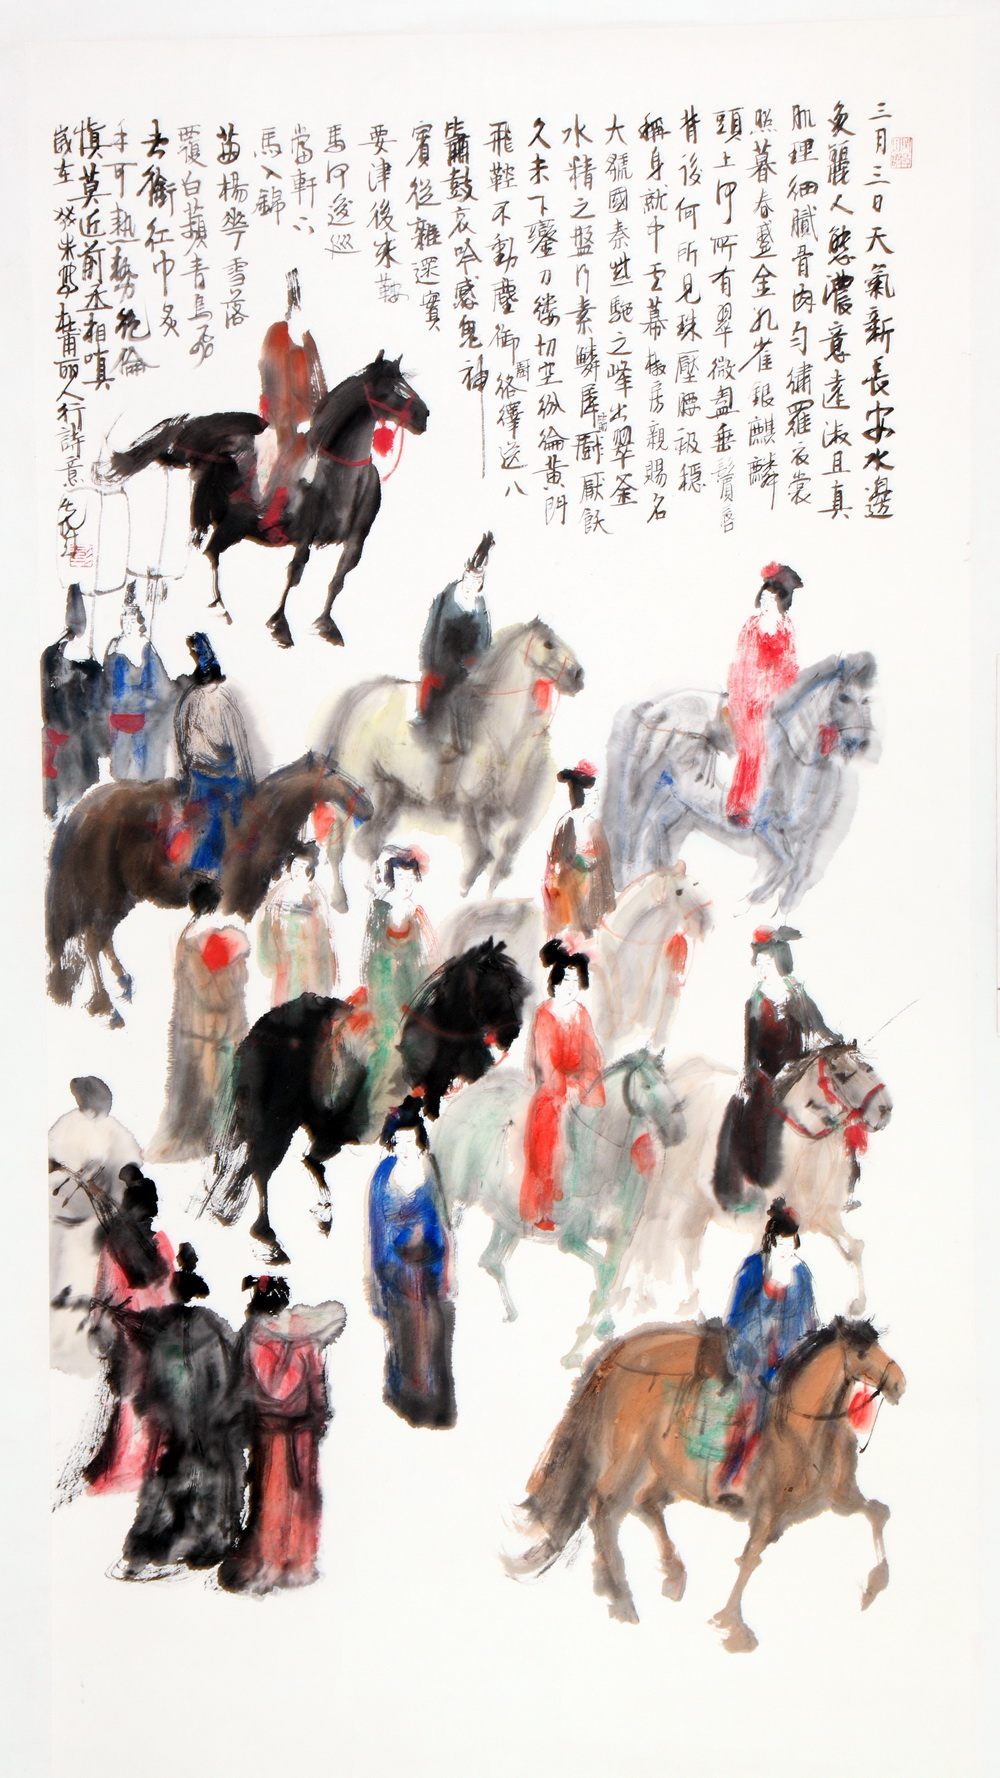 三月三日天氣新長安水邊
多麗人態濃意遠淑且真
肌理細膩骨肉勻繡羅衣裳
照暮春蹙金孔雀銀麒麟
頭上何所有翠微盍垂鬢唇
背後何所見珠壓腰衱穩
稱身就中雲幕椒房親賜名
大虢國秦與駝之峰出翠釜
水精之盤行素鱗犀箸厭飫
久未下鸞刀縷切空紛綸黃門
飛鞚不動塵御廚絡繹送八
簫鼓哀吟感鬼神
賓從雜遝實
要津後來鞍
馬何逡巡
當軒下
馬入錦
茵楊花雪落
覆白蘋青鳥飛
去銜紅巾炙
手可熱勢絕倫
慎莫近前丞相嗔
歲在癸未寫杜甫丽人行詩意